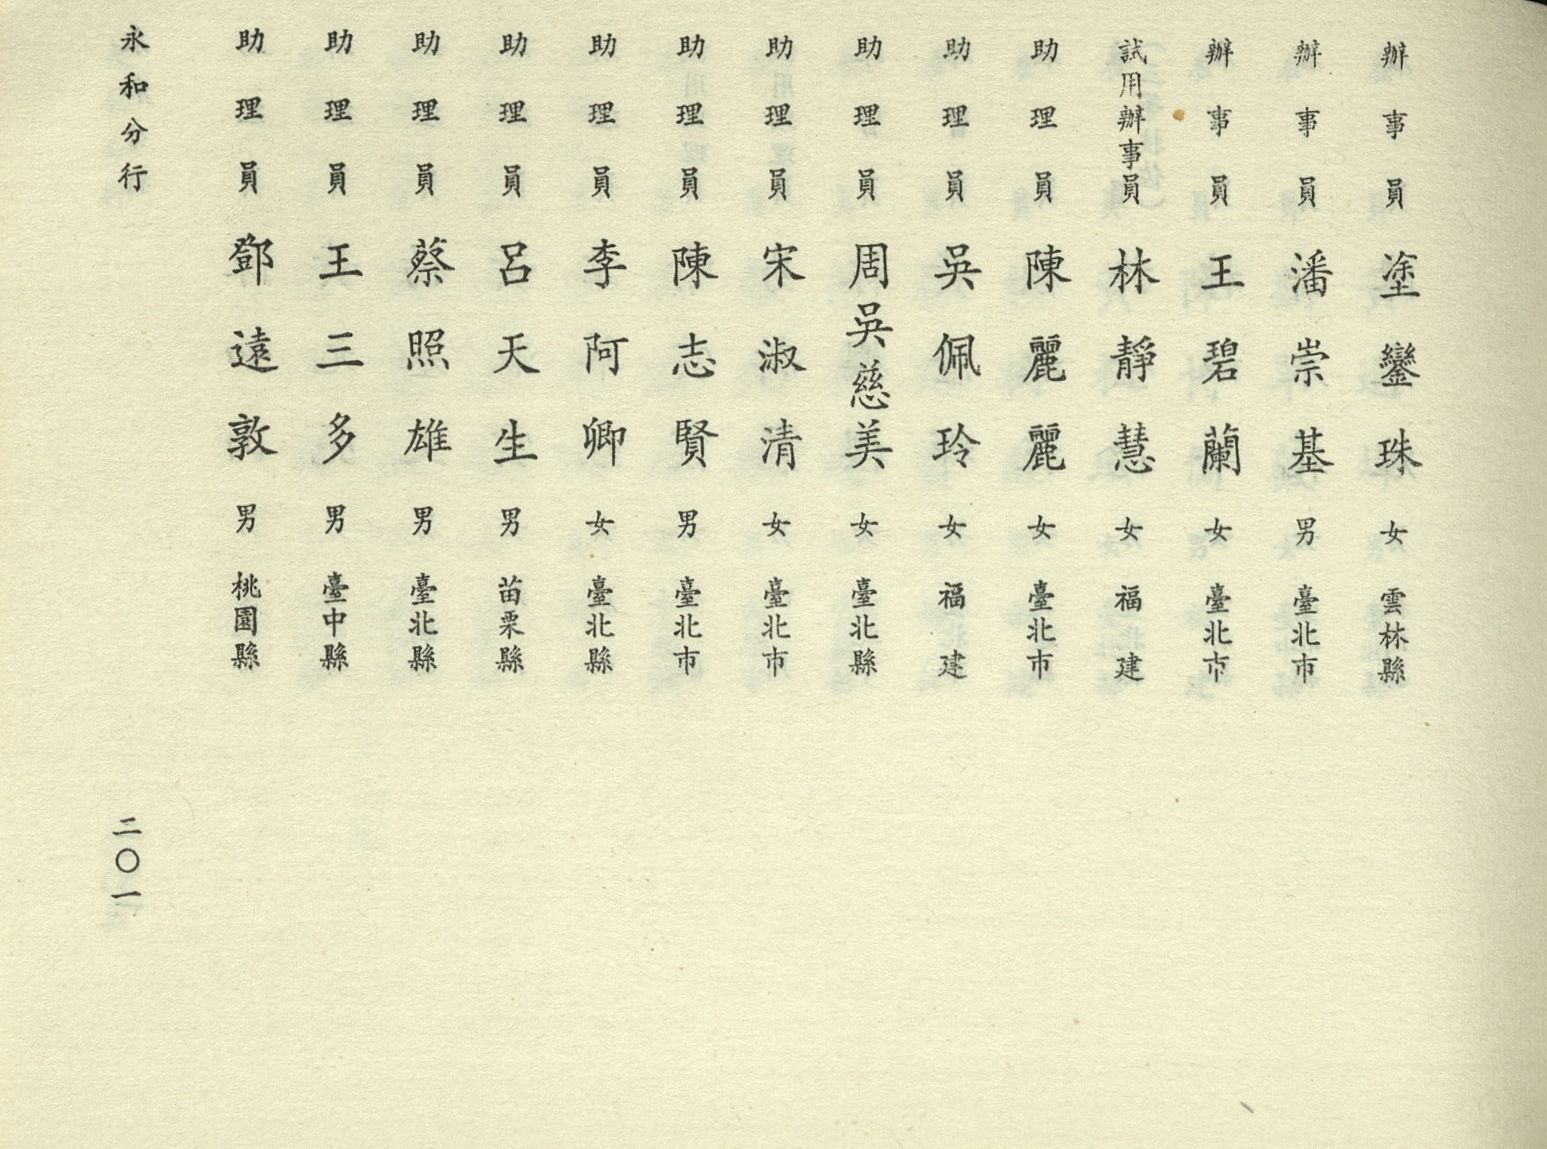 辦事員 塗鑾珠 女 雲林縣
辦事員 潘崇基 男 臺北市
辦事員 王碧蘭 女 臺北市
試用辦事員 林靜慧 女 福建
助理員 陳麗麗 女 臺北市
助理員 吳佩玲 女 福建
助理員 周吳慈美 女 臺北縣
助理員 宋淑清 女 臺北市
助理員 陳志賢 男 臺北市
助理員 李阿卿 女 臺北縣
助理員 呂天生 男 苗栗縣
助理員 蔡照雄 男 臺北縣
助理員 王三多 男 臺中縣
助理員 鄧遠敦 男 桃園縣
永和分行
二〇一